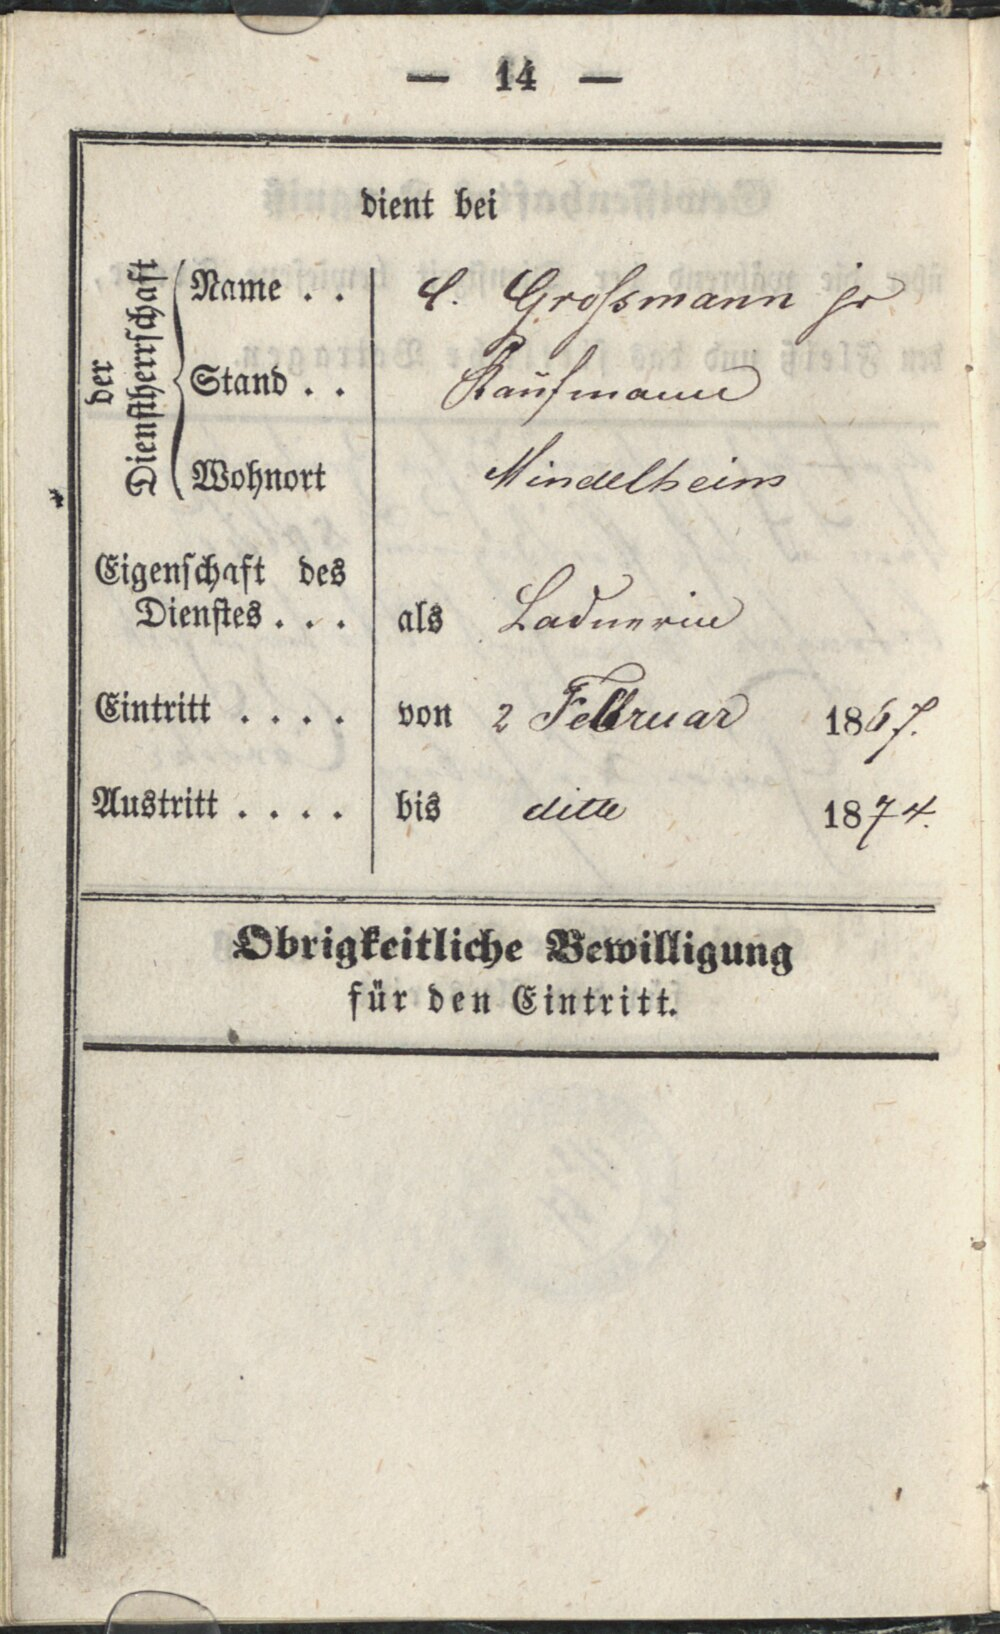 — 14 —
dient bei
der Dienstherrschaft
Name . . C. Grossmann jr
Stand . . Kaufmann
Wohnort Mindelheim
Eigenschaft des
Dienstes . . . als Ladnerin
Eintritt . . . . von 2 Februar 1867.
Austritt . . . . bis ditto 1874.
Obrigkeitliche Bewilligung
für den Eintritt.